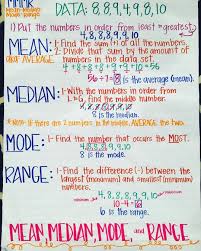 MMMR
Mean•Median
Mode•Range
DATA: 8,8,9,4,9,8,10
1) Put the numbers in order from least → greatest.
4,8,8,8,9,9,10
MEAN:
aka AVERAGE
1-Find the sum (+) of all the numbers.
2-Divide that sum by the amount of
numbers in the data set.
4+8+8+8+9+9+10=56
56÷7=8 8 is the average (mean).
MEDIAN:
1-With the numbers in order from
L→G, find the middle number.
4,8,8,8,9,9,10
8 is the median.
*Note: If there are 2 numbers in the middle, AVERAGE the two.
MODE:
1-Find the number that occurs the MOST.
4,8,8,8,9,9,10
8 is the mode.
RANGE:
1-Find the difference (-) between the
largest (maximum) and smallest (minimum)
numbers.
minimum 4,8,8,8,9,9,10 maximum
10-4=6
6 is the range.
MEAN, MEDIAN, MODE, and RANGE